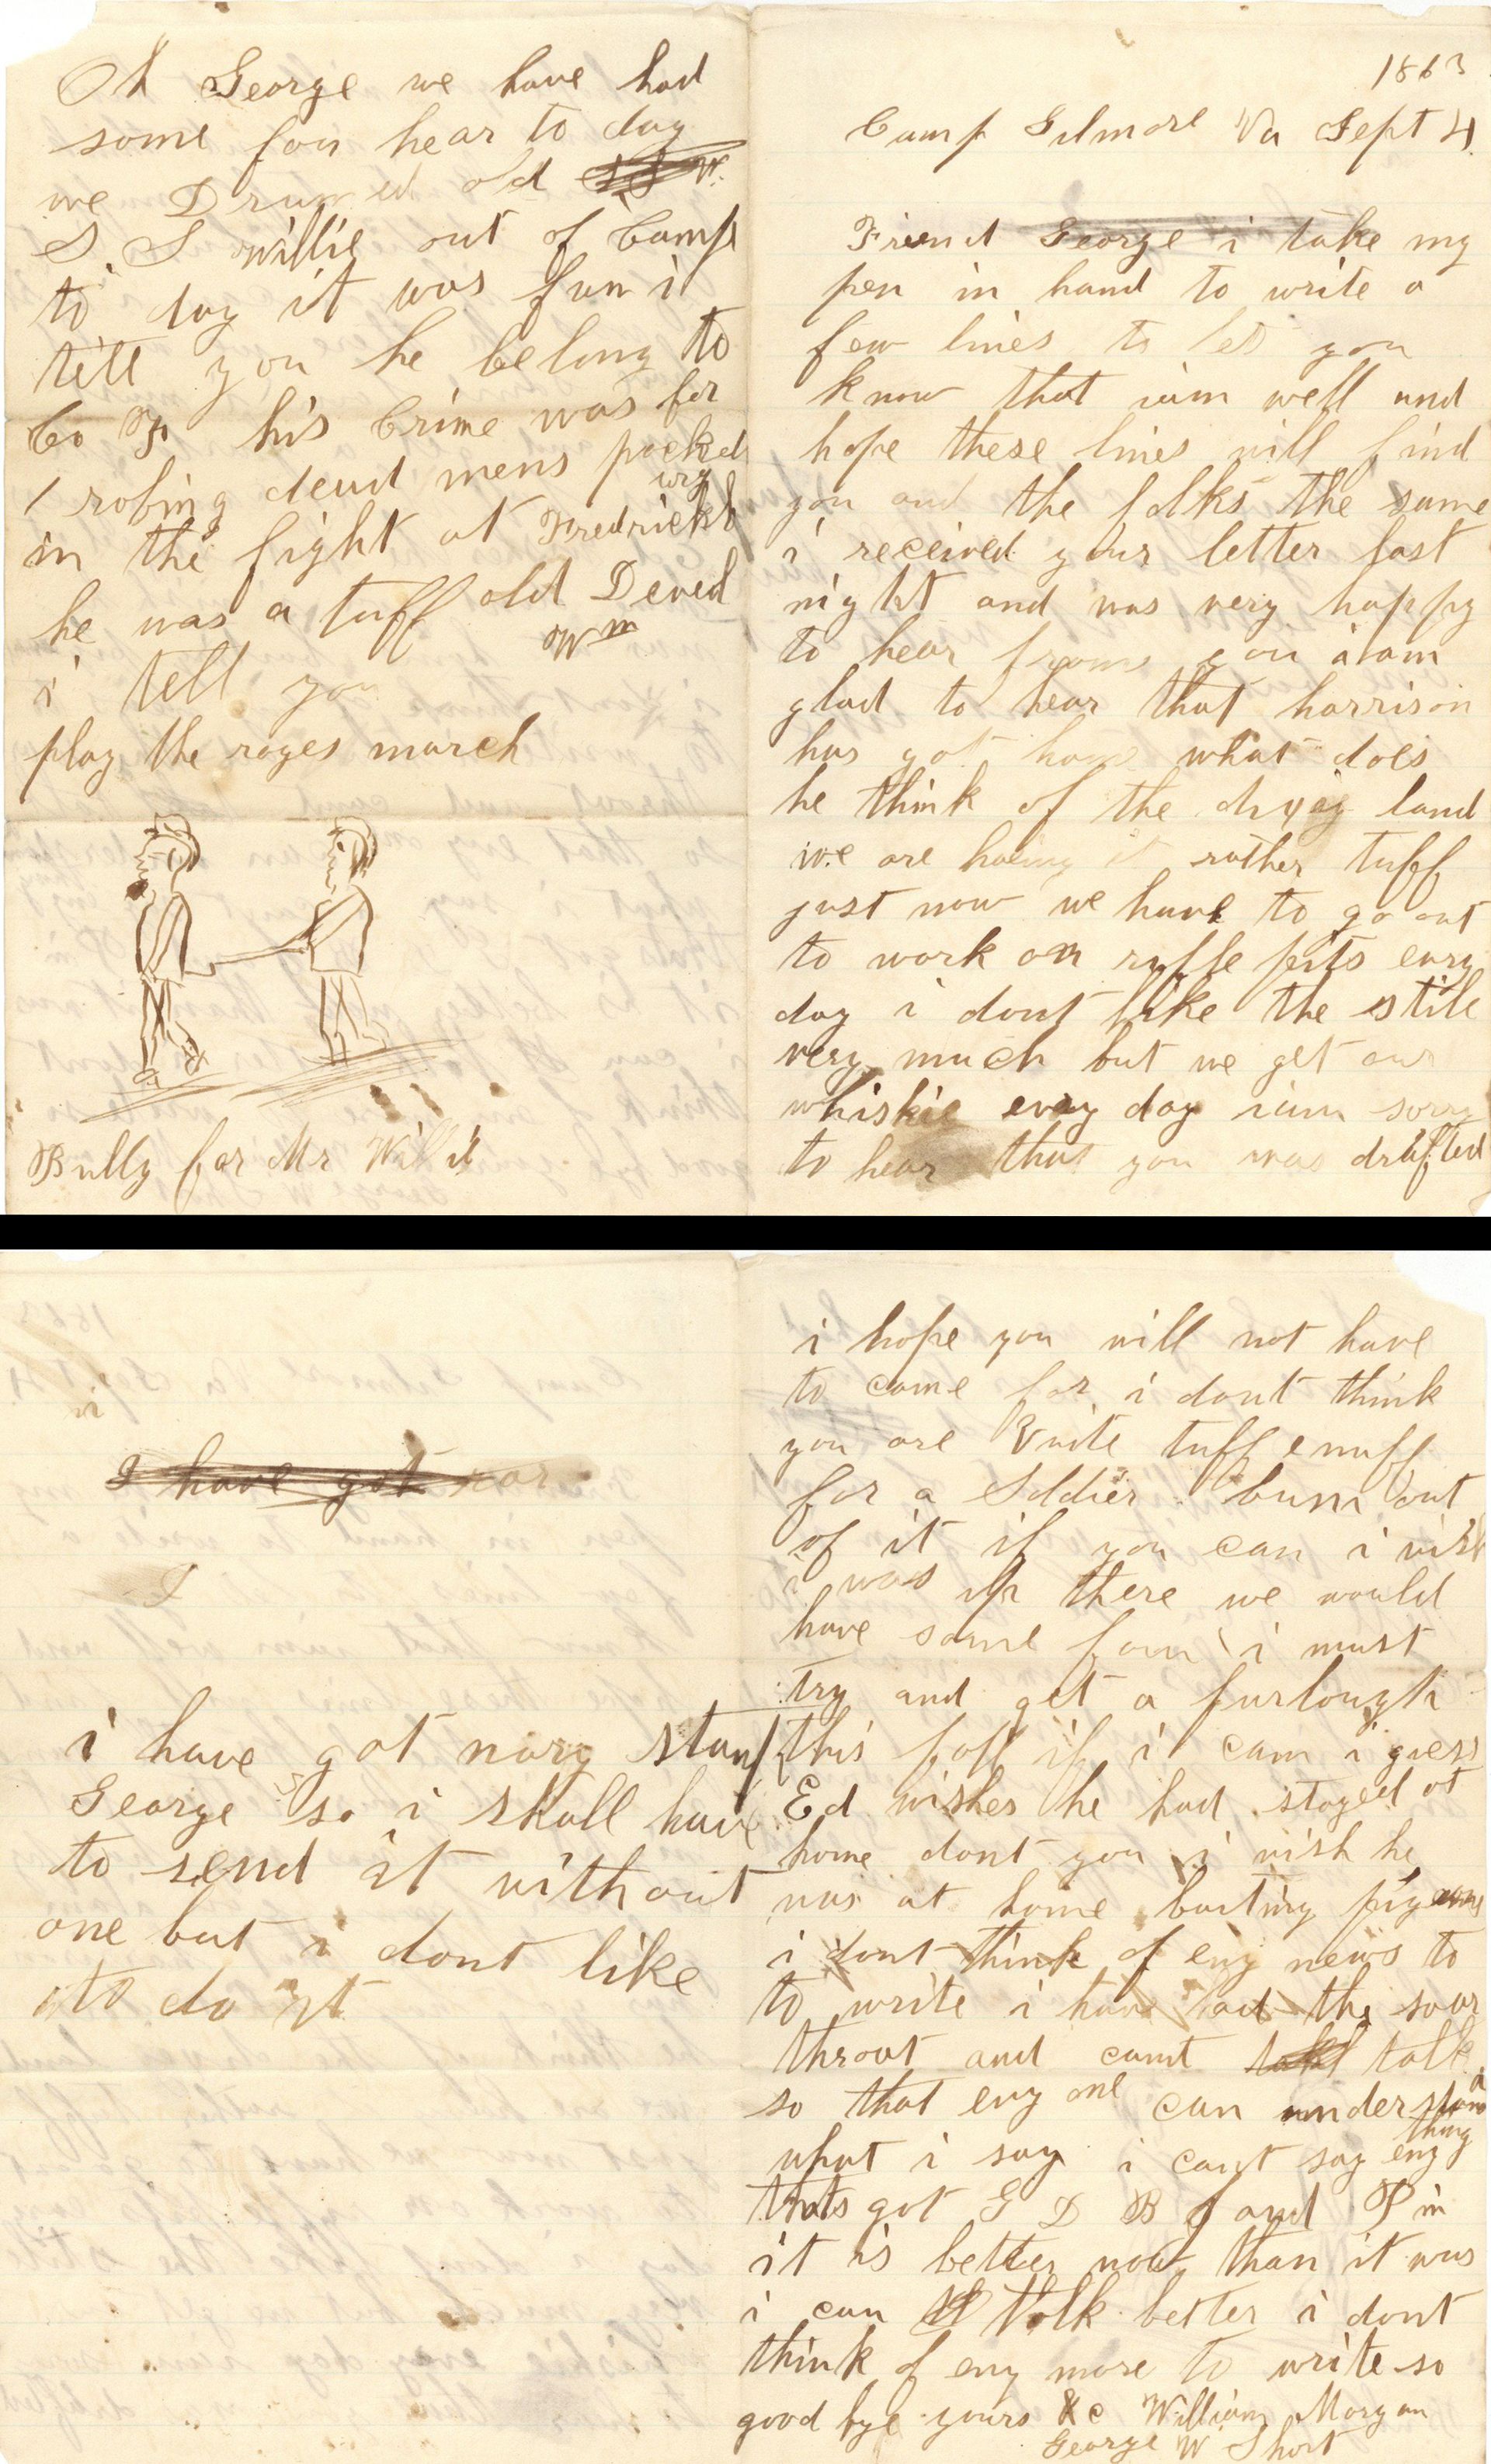 1863
Camp Gilmore Va Sept 4.
Friend George i take my
pen in hand to write a
few lines to let you
know that iam well and
hope these lines will find
you and the folks the same
i received your letter last
night and was very happy
to hear from you i am
glad to hear that harrison
has got home what does
he think of the land
we are haeing it rather tuff
just now we have to go out
to work on ryfle pits evry
day i dont like the stile
very much but we get our
whiskie evry day iam sorry
to hear that you was drafted
i hope you will not have
to come for i dont think
you are Quite tuff enuff
for a Soldier bum out
of it if you can i wish
i was up there we would
have some foun i must
try and get a furlough
this fall if i can i guess
Ed wishes he had stayed at
home dont you i wish he
was at home
i dont think of eny news to
to write i have had the soar
throat and cannt talk
so that eny one can understand
what i say i cant say eny thing
thats got G D B J and P in
it is better now than it was
i can talk better i dont
think of eny more to write so
good bye yours &c William Morgan
George W Short
Oh George we have had
some fon hear to day
we Drumed old W.
S. S Willie out of Camp
to day it was fun i
tell you he belong to
Co his Crime was for
robing dead mens pocked
in the fight at Fredricksburg
he was a tuff old Deved
Wm
i tell you
play the roges march
Bully for Mr Willie
I have got nar
I
i have got nary stamp
George so i shall have
to send it without
one but i dont like
to do it